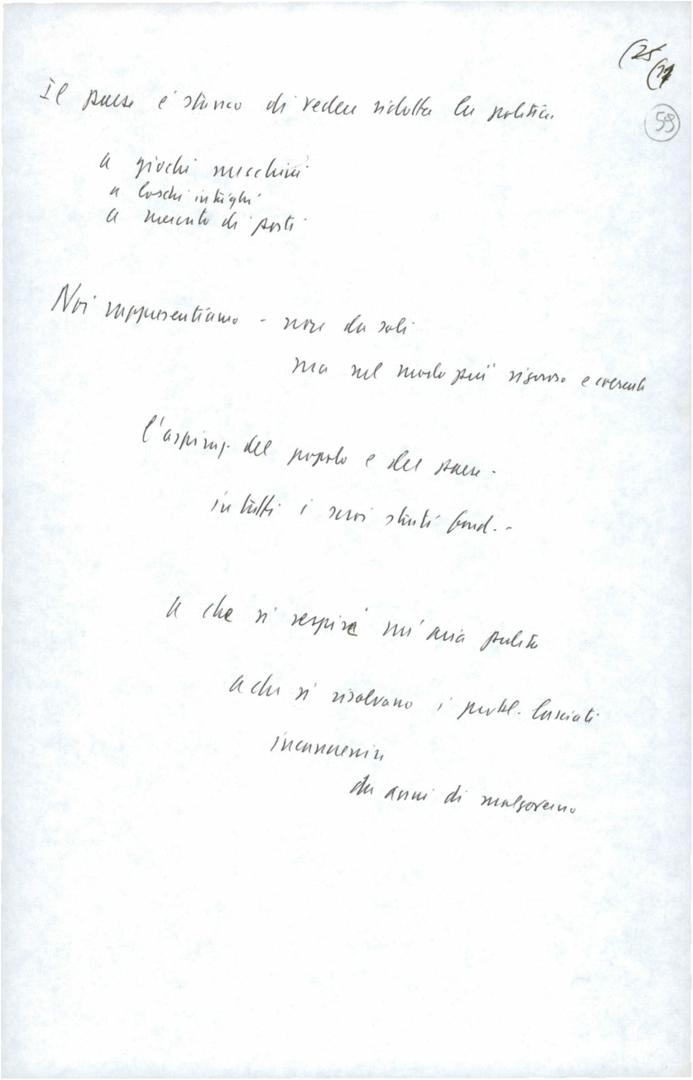 (25
59
Il paese è stanco di vedere ridotta la politica
a giochi meschini
a loschi intrighi
a mercato di posti
Noi rappresentiamo - non da soli
ma nel modo più rigoroso e coerente
l'aspiraz. del popolo e del paese -
in tutti i suoi strati fond. -
a che si respiri un'aria pulita
a che si risolvano i probl. lasciati
incancrenire
da anni di malgoverno